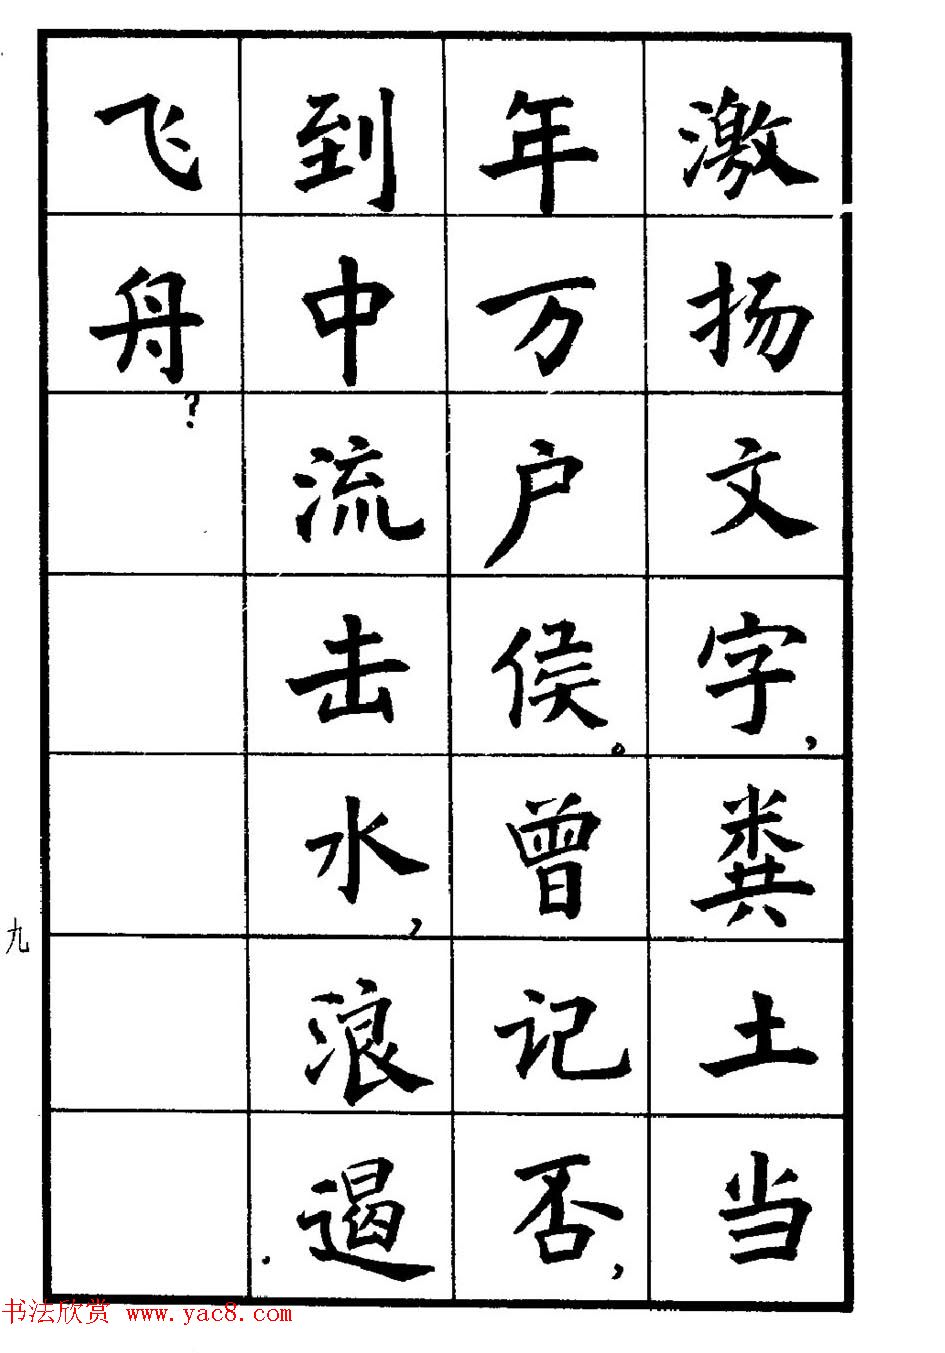 激扬文字,粪土当
年万户侯。曾记否,
到中流击水,浪遏
飞舟?
九
书法欣赏 www.yac8.com